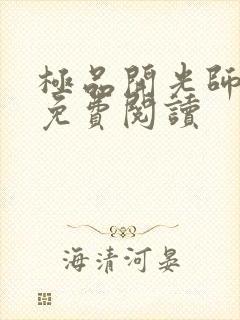 極品開光師
免費閱讀
海清河晏